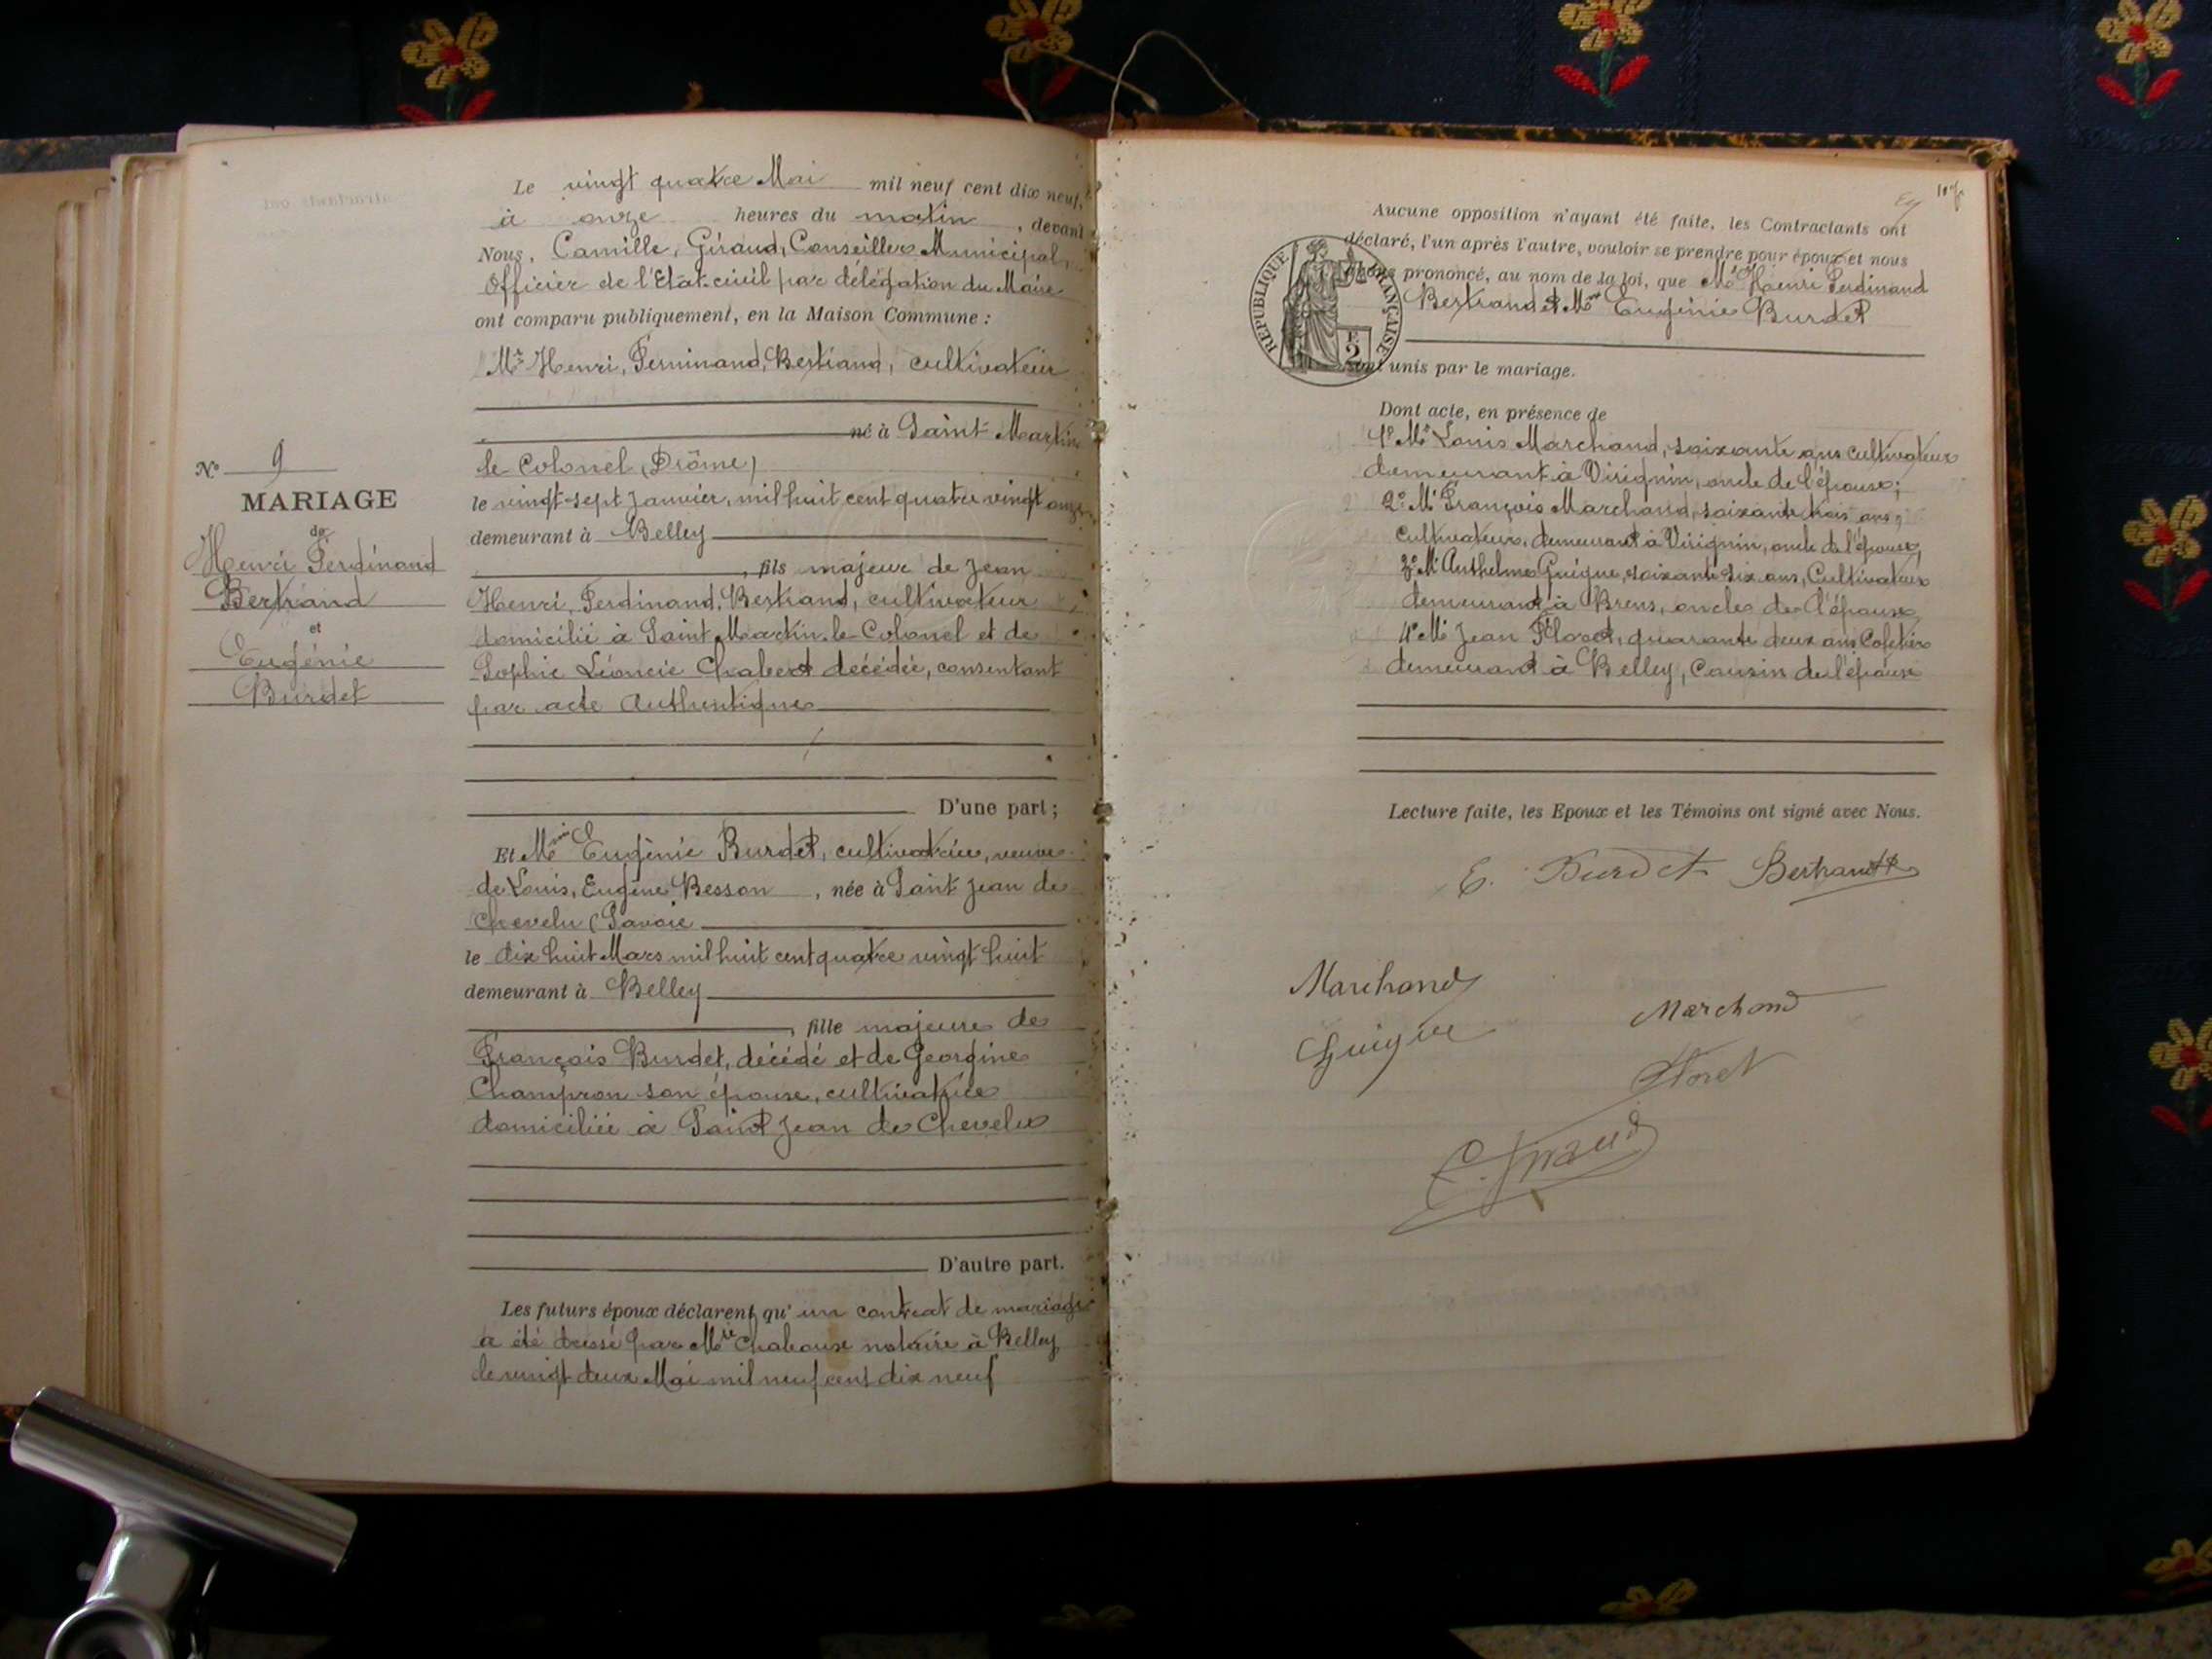 Le vingt quatre Mai mil neuf cent dix neuf,
à onze heures du matin, devant
Nous, Camille, Giraud, Conseiller Municipal,
Officier de l'Etat-civil par délégation du Maire
ont comparu publiquement, en la Maison Commune :
Mr Henri, Ferninand, Bertrand, cultivateur
né à Saint-Martin
le Colonel (Drôme)
le vingt-sept Janvier, mil huit cent quatre vingt onze
demeurant à Belley
, fils majeur de Jean
Henri, Ferdinand, Bertrand, cultivateur
domicilié à Saint Martin-le-Colonel et de
Sophie Léoncie Chabert décédée, consentant
par acte Authentique
D'une part ;
N° 9
MARIAGE
de
Henri Ferdinand
Bertrand
et
Eugénie
Burdet
Et Mme Eugènie Burdet, cultivatrice, veuve
de Louis, Eugène Besson, née à Saint Jean de
Chevelu (Savoie
le dix huit Mars mil huit cent quatre vingt huit
demeurant à Belley
, fille majeure de
François Burdet, décédé et de Georgine
Champron son épouse, cultivatrice
domiciliée à Saint Jean de Chevelu
D'autre part.
Les futurs époux déclarent qu'un contrat de mariage
a été dressé par Me notaire à Belley
le vingt deux Mai mil neuf cent dix neuf
Aucune opposition n'ayant été faite, les Contractants ont
déclaré, l'un après l'autre, vouloir se prendre pour époux et nous
avons prononcé, au nom de la loi, que Mr Henri Ferdinand
Bertrand et Mme Eugènie Burdet
REPUBLIQUE FRANÇAISE
2
sont unis par le mariage.
Dont acte, en présence de
1° Mr Louis Marchand, soixante ans cultivateur
demeurant à Virignin, oncle de l'épouse ;
2° Mr François Marchand, soixante trois ans,
cultivateur, demeurant à Virignin, oncle de l'épouse,
3° Mr Anthelme Guigue, soixante six ans, Cultivateur
demeurant à Brens, oncle de l'épouse
4° Mr Jean Floret, quarante deux ans Cafetier
demeurant à Belley, Cousin de l'épouse
Lecture faite, les Epoux et les Témoins ont signé avec Nous.
E. Burdet Bertrand
Marchand
Marchand
Guigue
Floret
C. Giraud